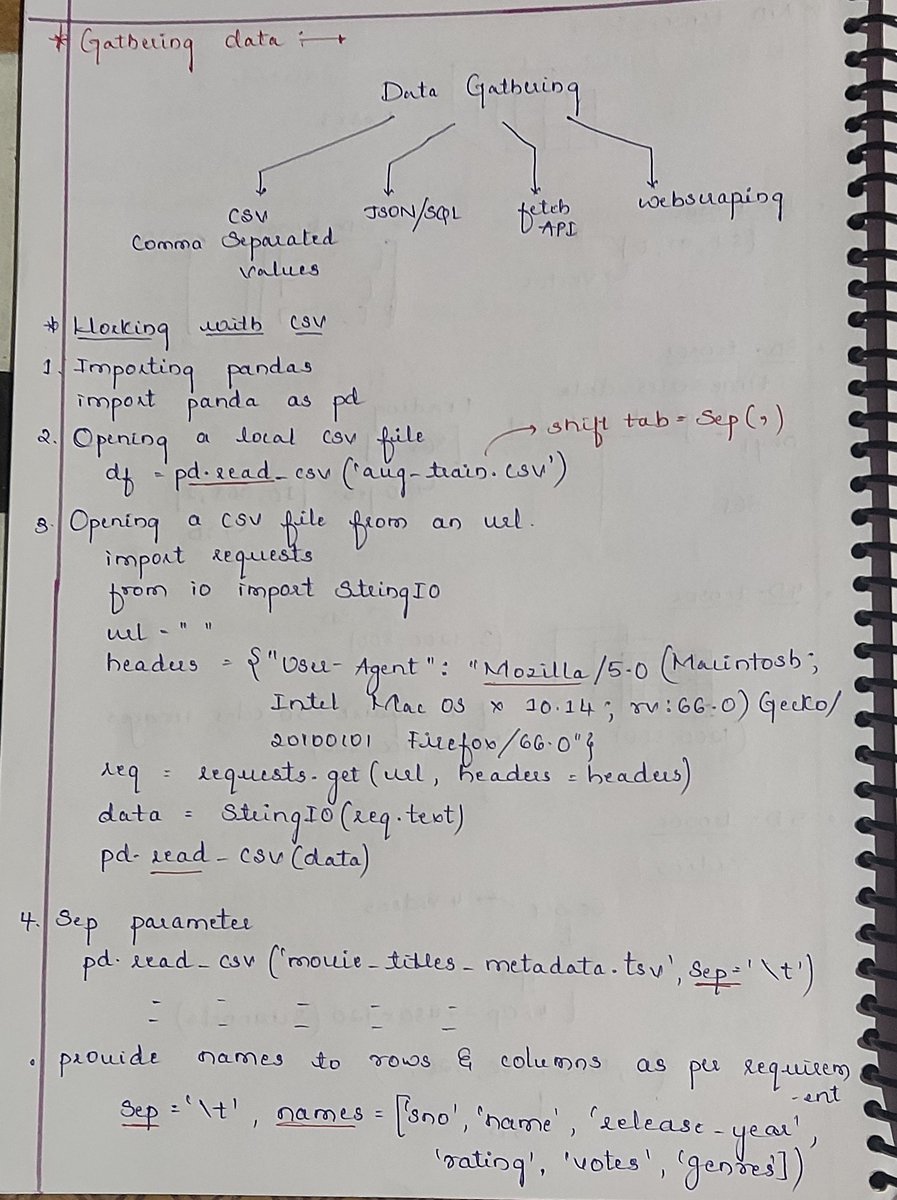 * Gathering data :→
Data Gathering
CSV
Comma Separated
values
JSON/SQL
fetch
API
webscraping
* Working with CSV
1. Importing pandas
import panda as pd
2. Opening a local csv file
→ shift tab = Sep(,)
df = pd.read_csv('aug-train.csv')
3. Opening a csv file from an url.
import requests
from io import StringIO
url = " "
headers = {"User-Agent": "Mozilla/5.0 (Macintosh;
Intel Mac OS x 10.14; rv:66.0) Gecko/
20100101 Firefox/66.0"}
req = requests.get(url, headers = headers)
data = StringIO(req.text)
pd.read_csv(data)
4. Sep parameter
pd.read_csv('movie_titles_metadata.tsv', Sep='\t')
= = = = =
. provide names to rows & columns as per requirem
-ent
Sep = '\t', names = ['sno', 'name', 'release-year',
'rating', 'votes', 'genres'])